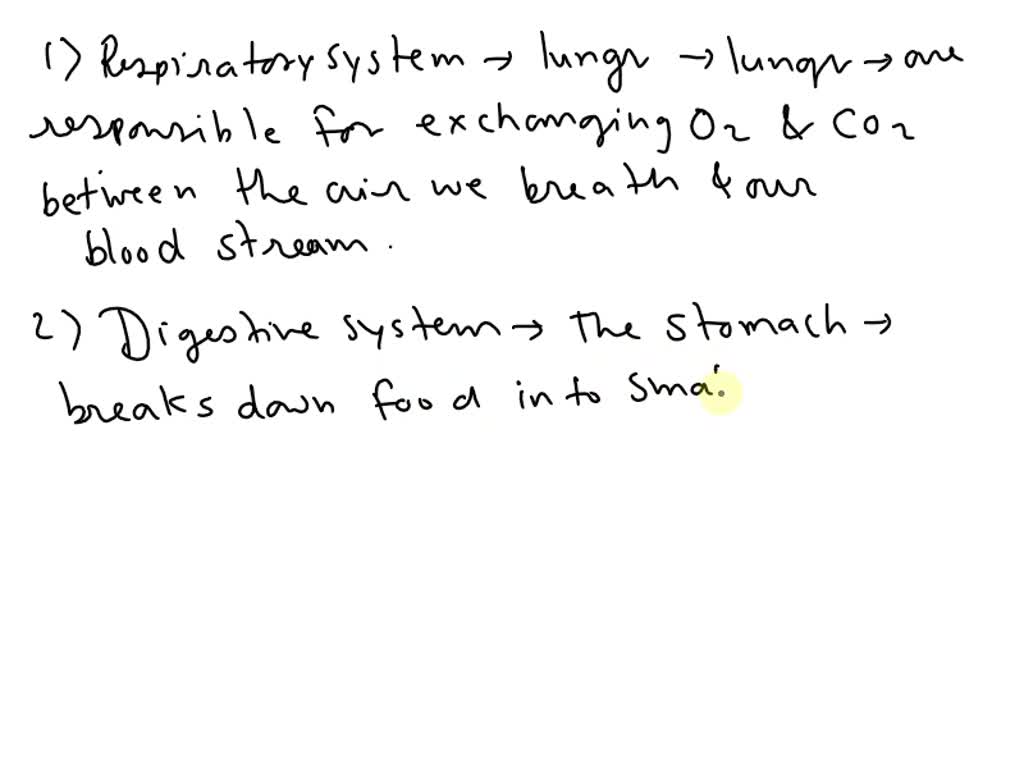 1) Respiratory system → lungs → lungs → are
responsible for exchanging O2 & CO2
between the air we breath & our
blood stream.
2) Digestive system → The stomach →
breaks down food into sma